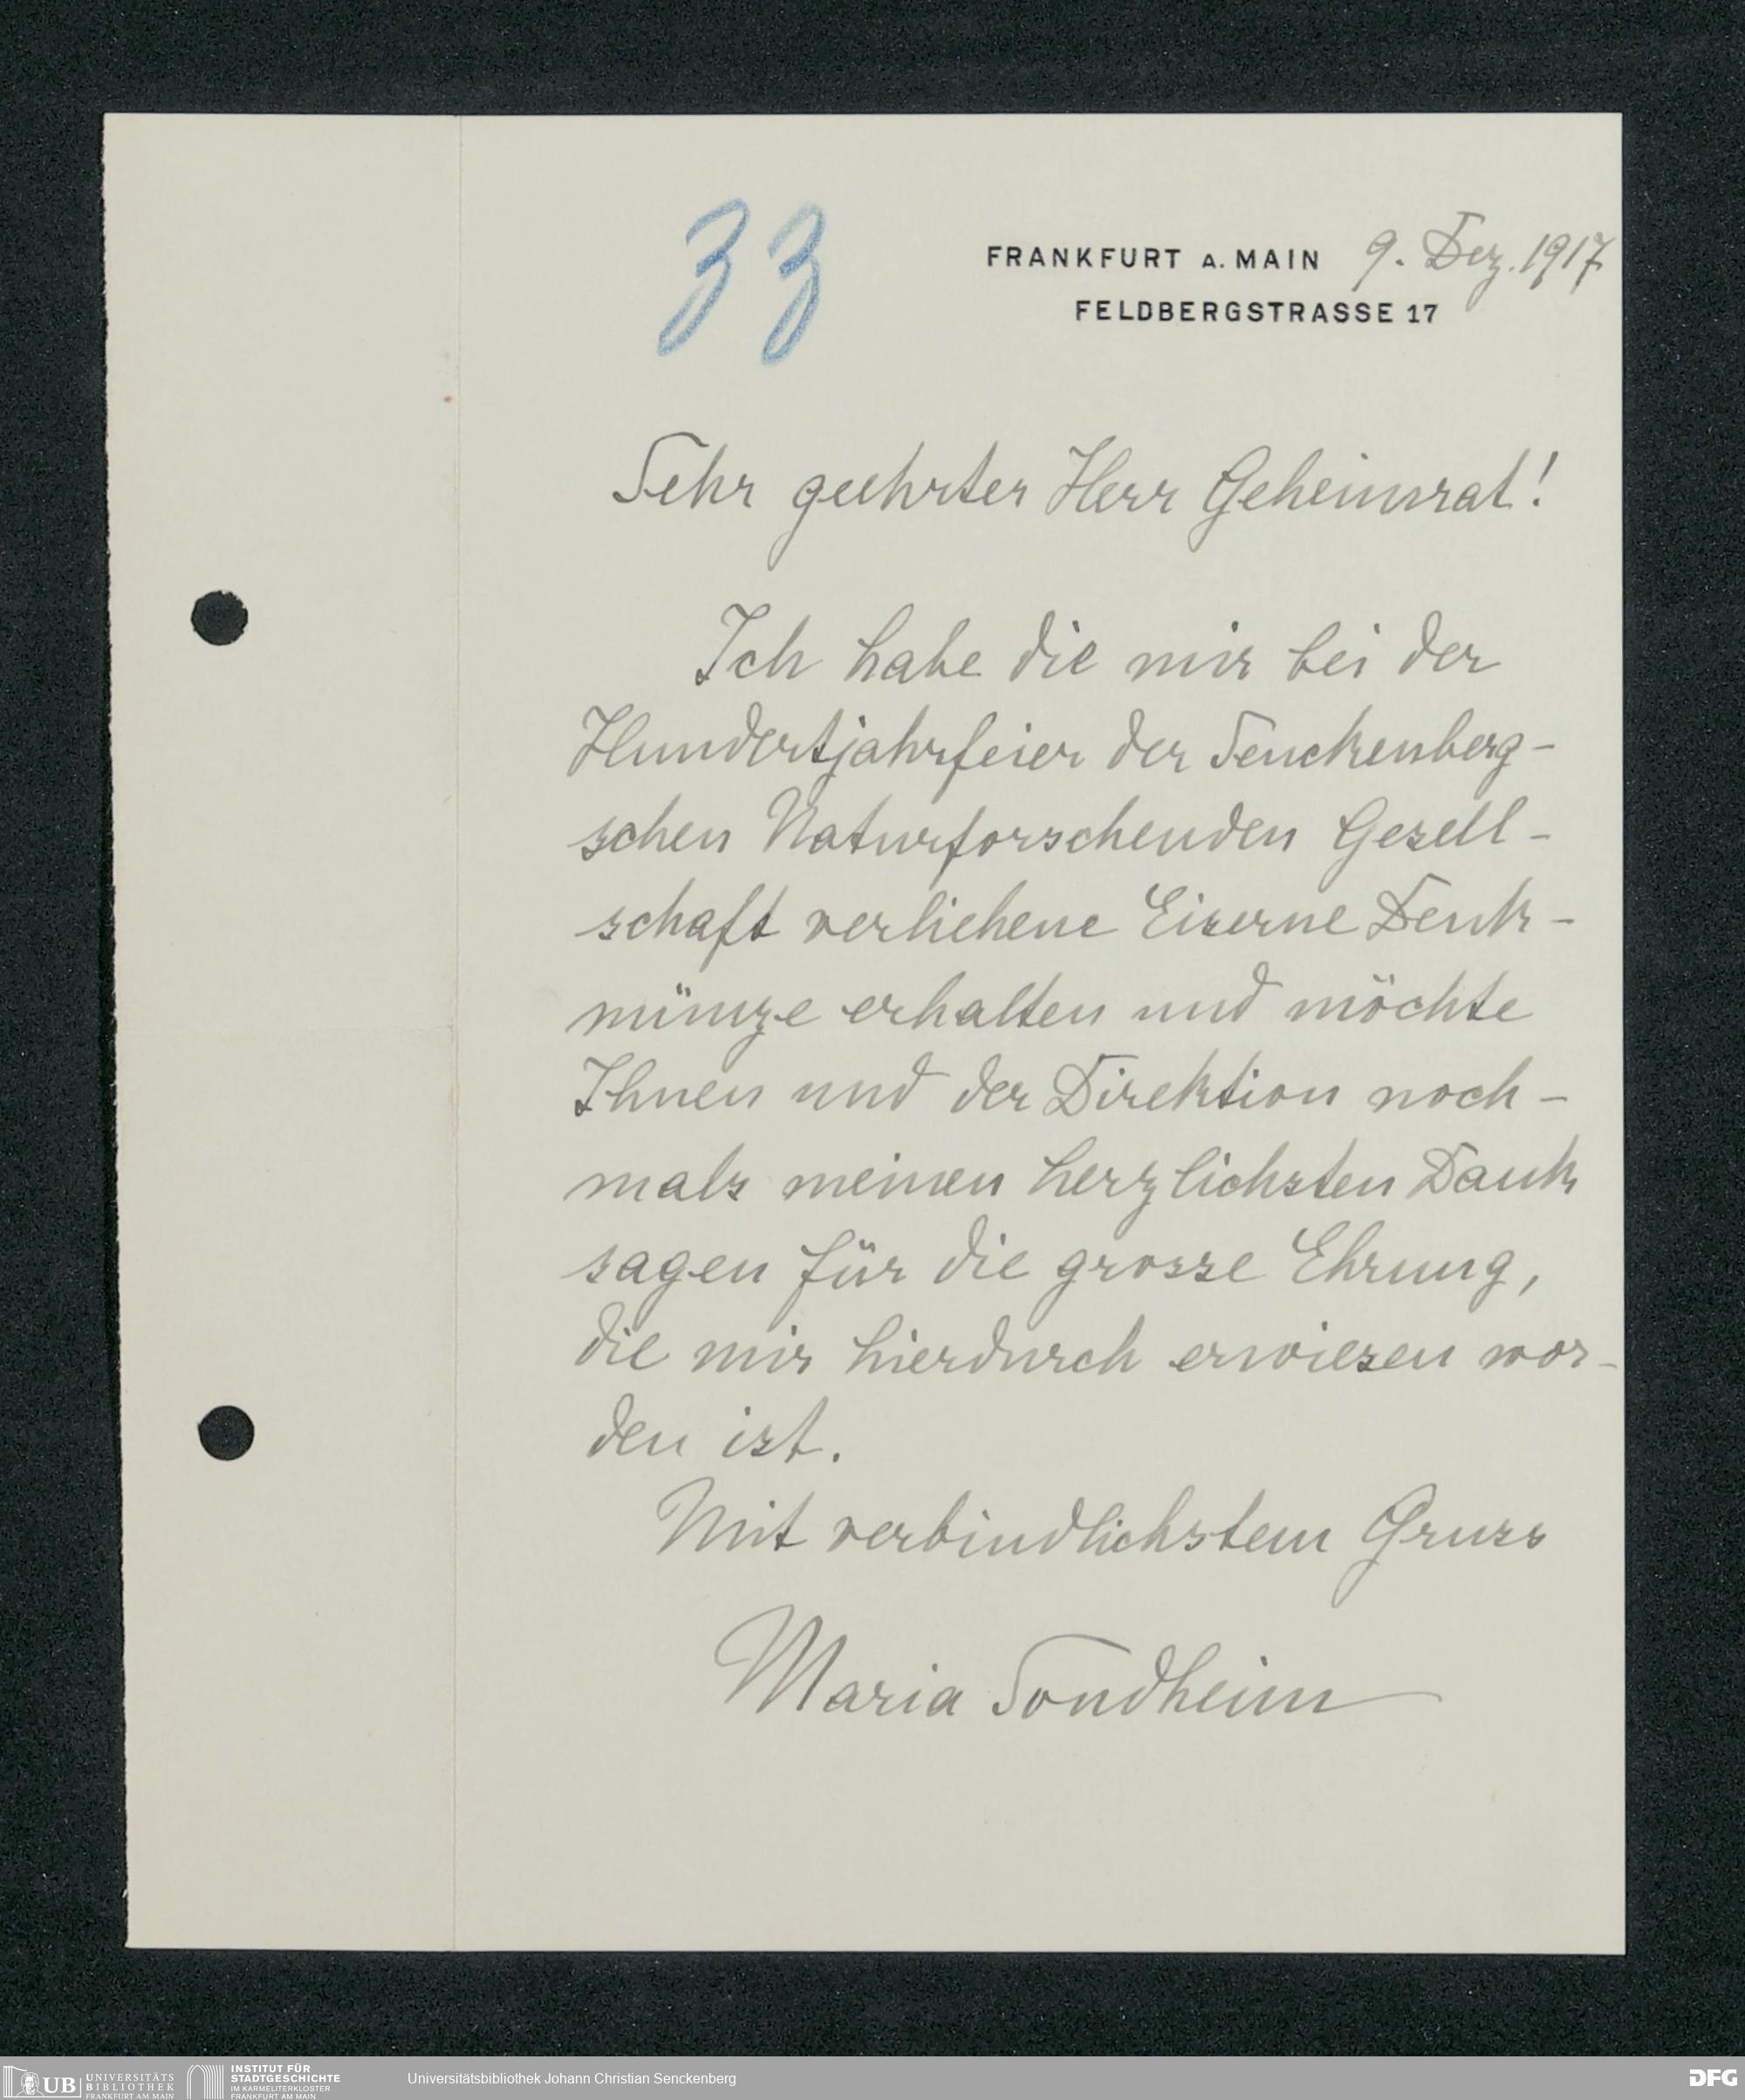 33
FRANKFURT A. MAIN 9. Dez. 1917
FELDBERGSTRASSE 17
Sehr geehrter Herr Geheimrat!
Ich habe die mir bei der
Hundertjahrfeier der Senckenberg-
schen Naturforschenden Gesell-
schaft verliehene Eiserne Denk-
münze erhalten und möchte
Ihnen und der Direktion noch-
mals meinen herzlichsten Dank
sagen für die grosse Ehrung,
die mir hierdurch erwiesen wor-
den ist.
Mit verbindlichstem Gruss
Maria Sondheim
UB UNIVERSITÄTS
BIBLIOTHEK
FRANKFURT AM MAIN
INSTITUT FÜR
STADTGESCHICHTE
IM KARMELITERKLOSTER
FRANKFURT AM MAIN
Universitätsbibliothek Johann Christian Senckenberg
DFG